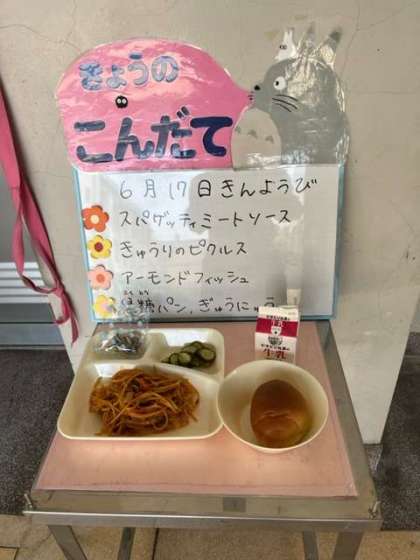 きょうの
こんだて
6月17日きんようび
スパゲッティミートソース
きゅうりのピクルス
アーモンドフィッシュ
糖パン、ぎゅうにゅう
牛乳
牛乳